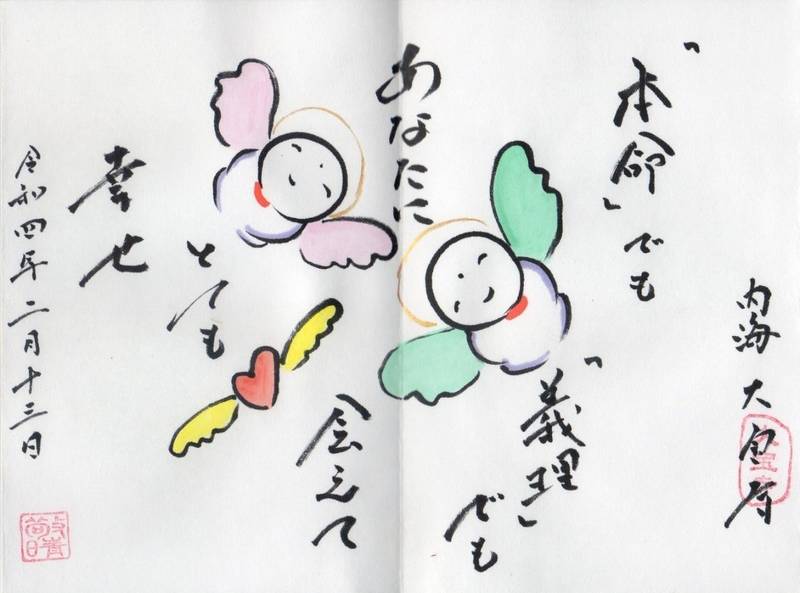 内海 大宝寺
「本命」でも
「義理」でも
あなたに
会えて
とても
幸せ
令和四年二月十三日